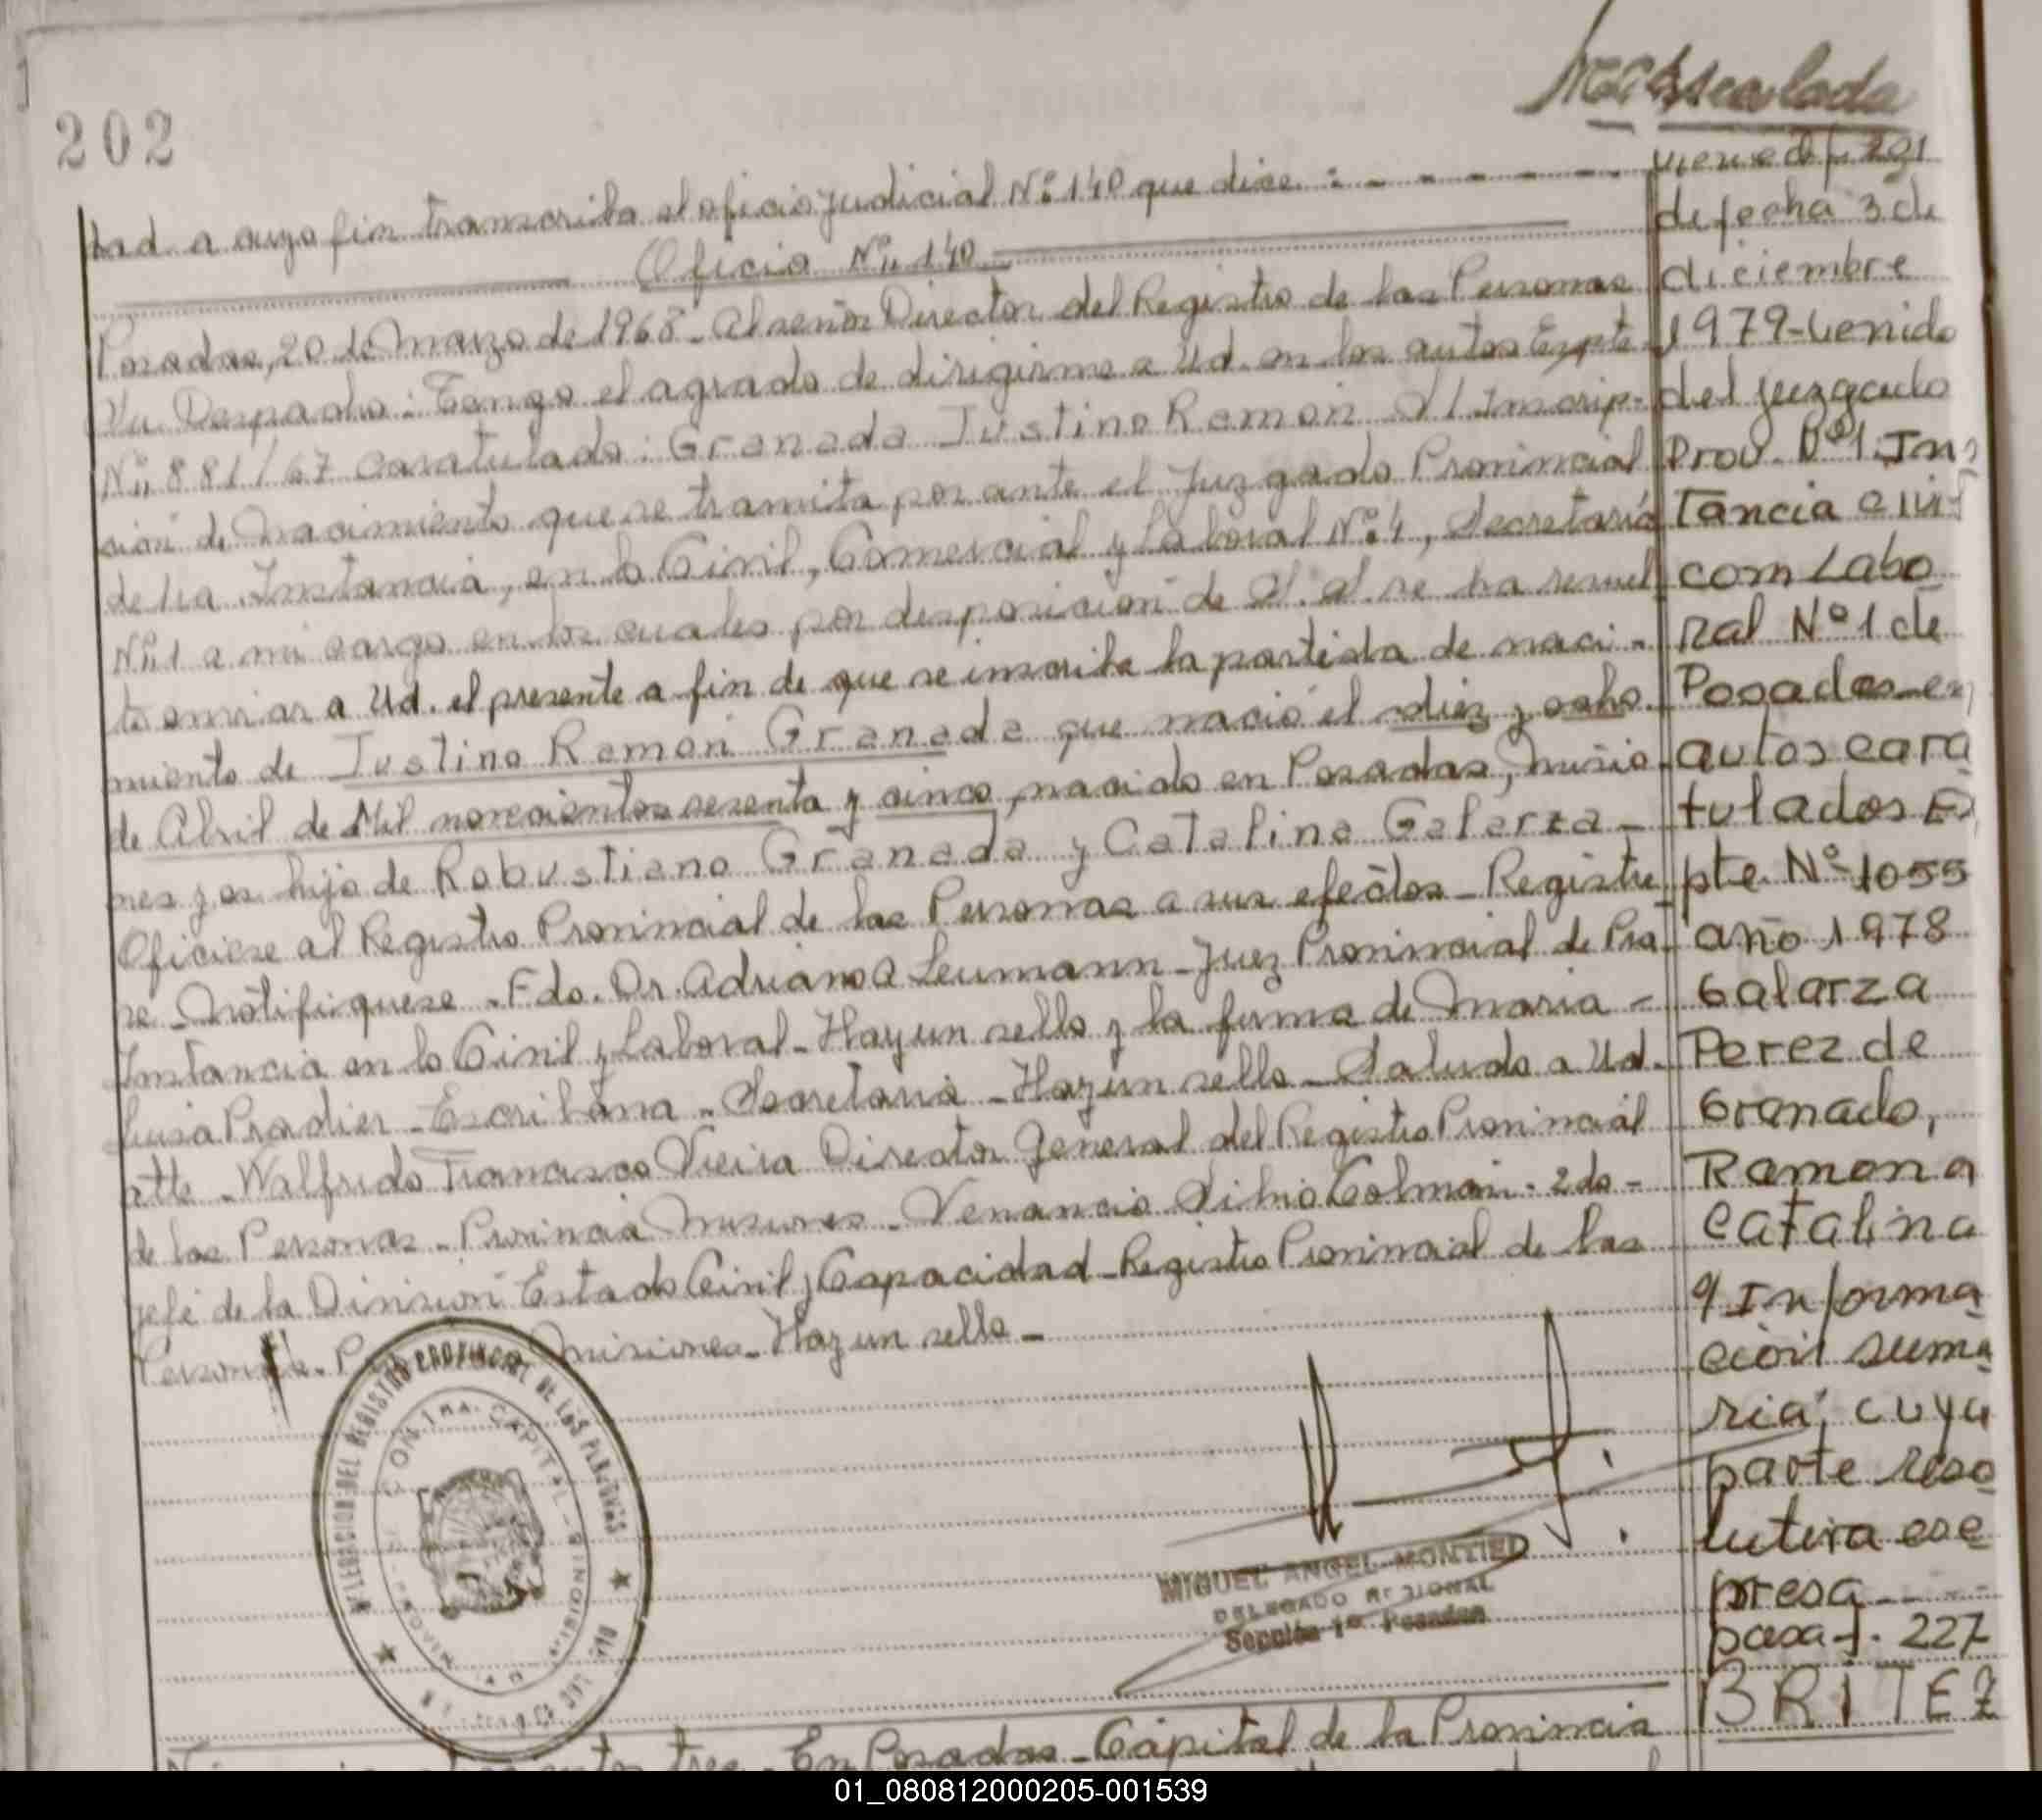 202
viene d f. 201
tad a cuyo fin transcriba el oficio judicial Nº 140 que dice:
Oficio Nº 140
Posadas, 20 de Marzo de 1968 - Al señor Director del Registro de las Personas
Su Despacho: Tengo el agrado de dirigirme a Ud. en los autos Expte
Nº 881/67 caratulado: Granada Justino Ramon S/ Inscrip-
ción de Nacimiento que se tramita por ante el Juzgado Provincial
de 1ra Instancia, en lo Civil, Comercial y Laboral Nº 4, Secretaría
Nº 1 a mi cargo en los cuales por desposicion de S.S. se ha resuel
to enviar a Ud. el presente a fin de que se inscriba la partida de naci-
miento de Justino Ramon Granada que nació el diez y ocho
de Abril de Mil novecientos sesenta y cinco, nacido en Posadas, Misio-
nes y es hijo de Robustiano Granada y Catalina Galarza -
Oficiese al Registro Provincial de las Personas a sus efectos - Registre
se - Notifiquese - Fdo. Dr. Adriano A Leumann - Juez Provincial de Pra
Instancia en lo Civil y Laboral - Hay un sello y la firma de Maria -
Luisa Pradier - Escribana - Secretaria - Hay un sello - Saludo a Ud.
atte - Walfrido Francisco Vieira Director General del Registro Provincial
de las Personas - Provincia Misiones - Venancio Silvio Colman - 2do -
Jefe de la Division Estado Civil y Capacidad - Registro Provincial de las
Personas - Misiones - Hay un sello -
DIRECCION DEL REGISTRO PROVINCIAL DE LAS PERSONAS
MIGUEL ANGEL MONTIEL
DELEGADO REGIONAL
Sección 1ª Posadas
En Posadas - Capital de la Provincia
de fecha 3 de
diciembre
1979 - venido
del juzgado
Prov. Nº 1 Ins
tancia civ
com Labo
ral Nº 1 de
Posadas en
autos cara
tulados Ex
pte Nº 1055
año 1978
Galarza
Perez de
Granado,
Ramona
Catalina
s/ Informa
ción suma
ria, cuya
parte reso
lutiva ex
presa
pasa f. 227
BRITEZ
01_080812000205-001539